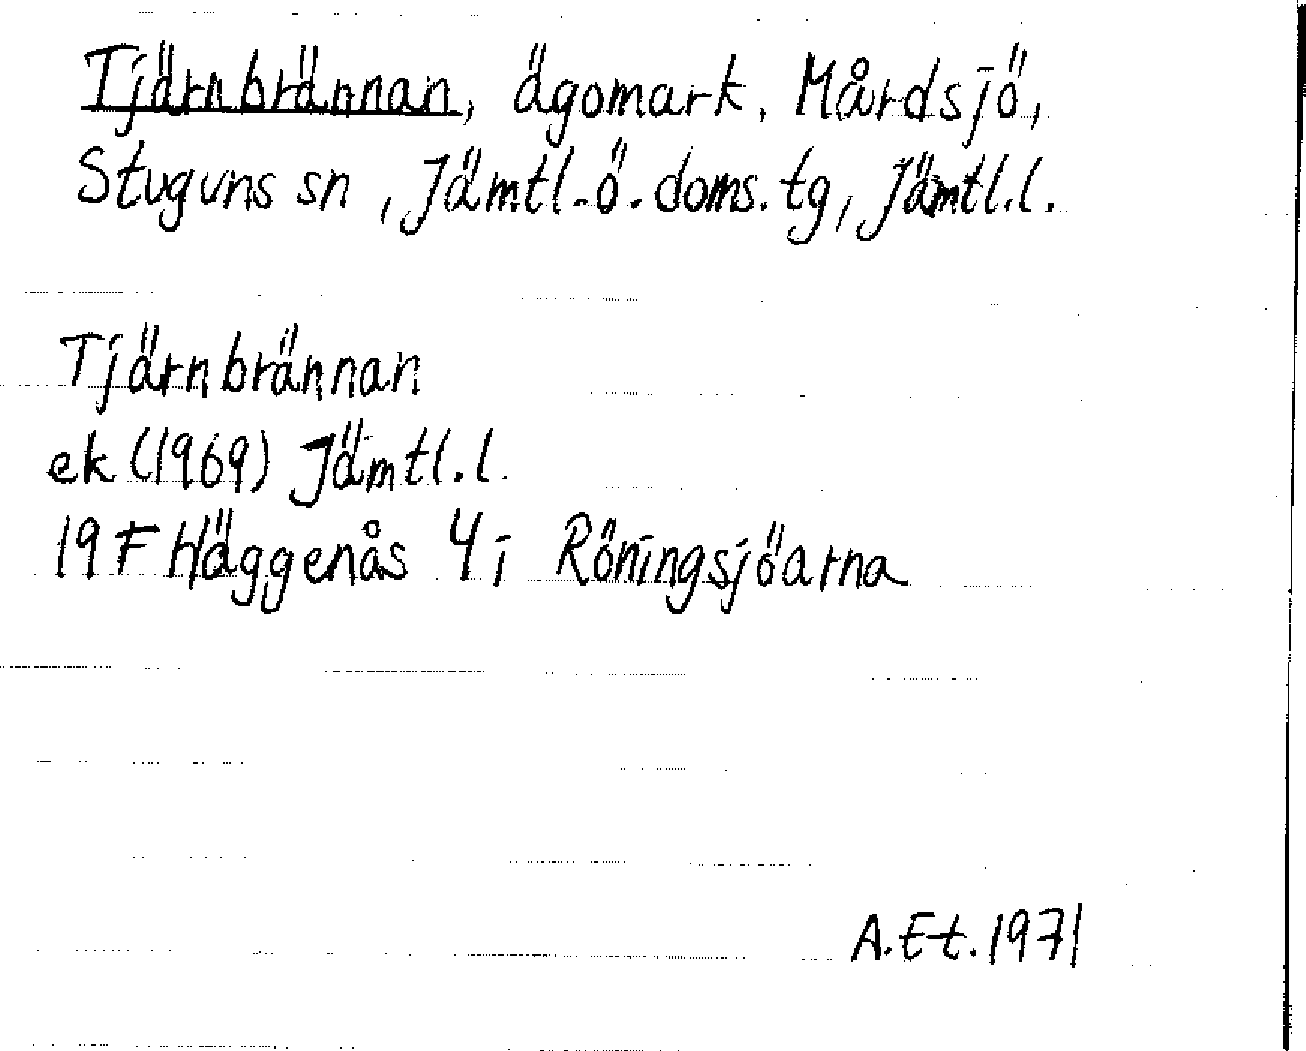 Tjärnbrännan, ägomark, Mårdsjö,
Stuguns sn, Jämtl.ö.doms.tg, Jämtl.l.
Tjärnbrännan
ek (1969) Jämtl.l.
19 F Häggenås 4 i Röningsjöarna
A.Et.1971